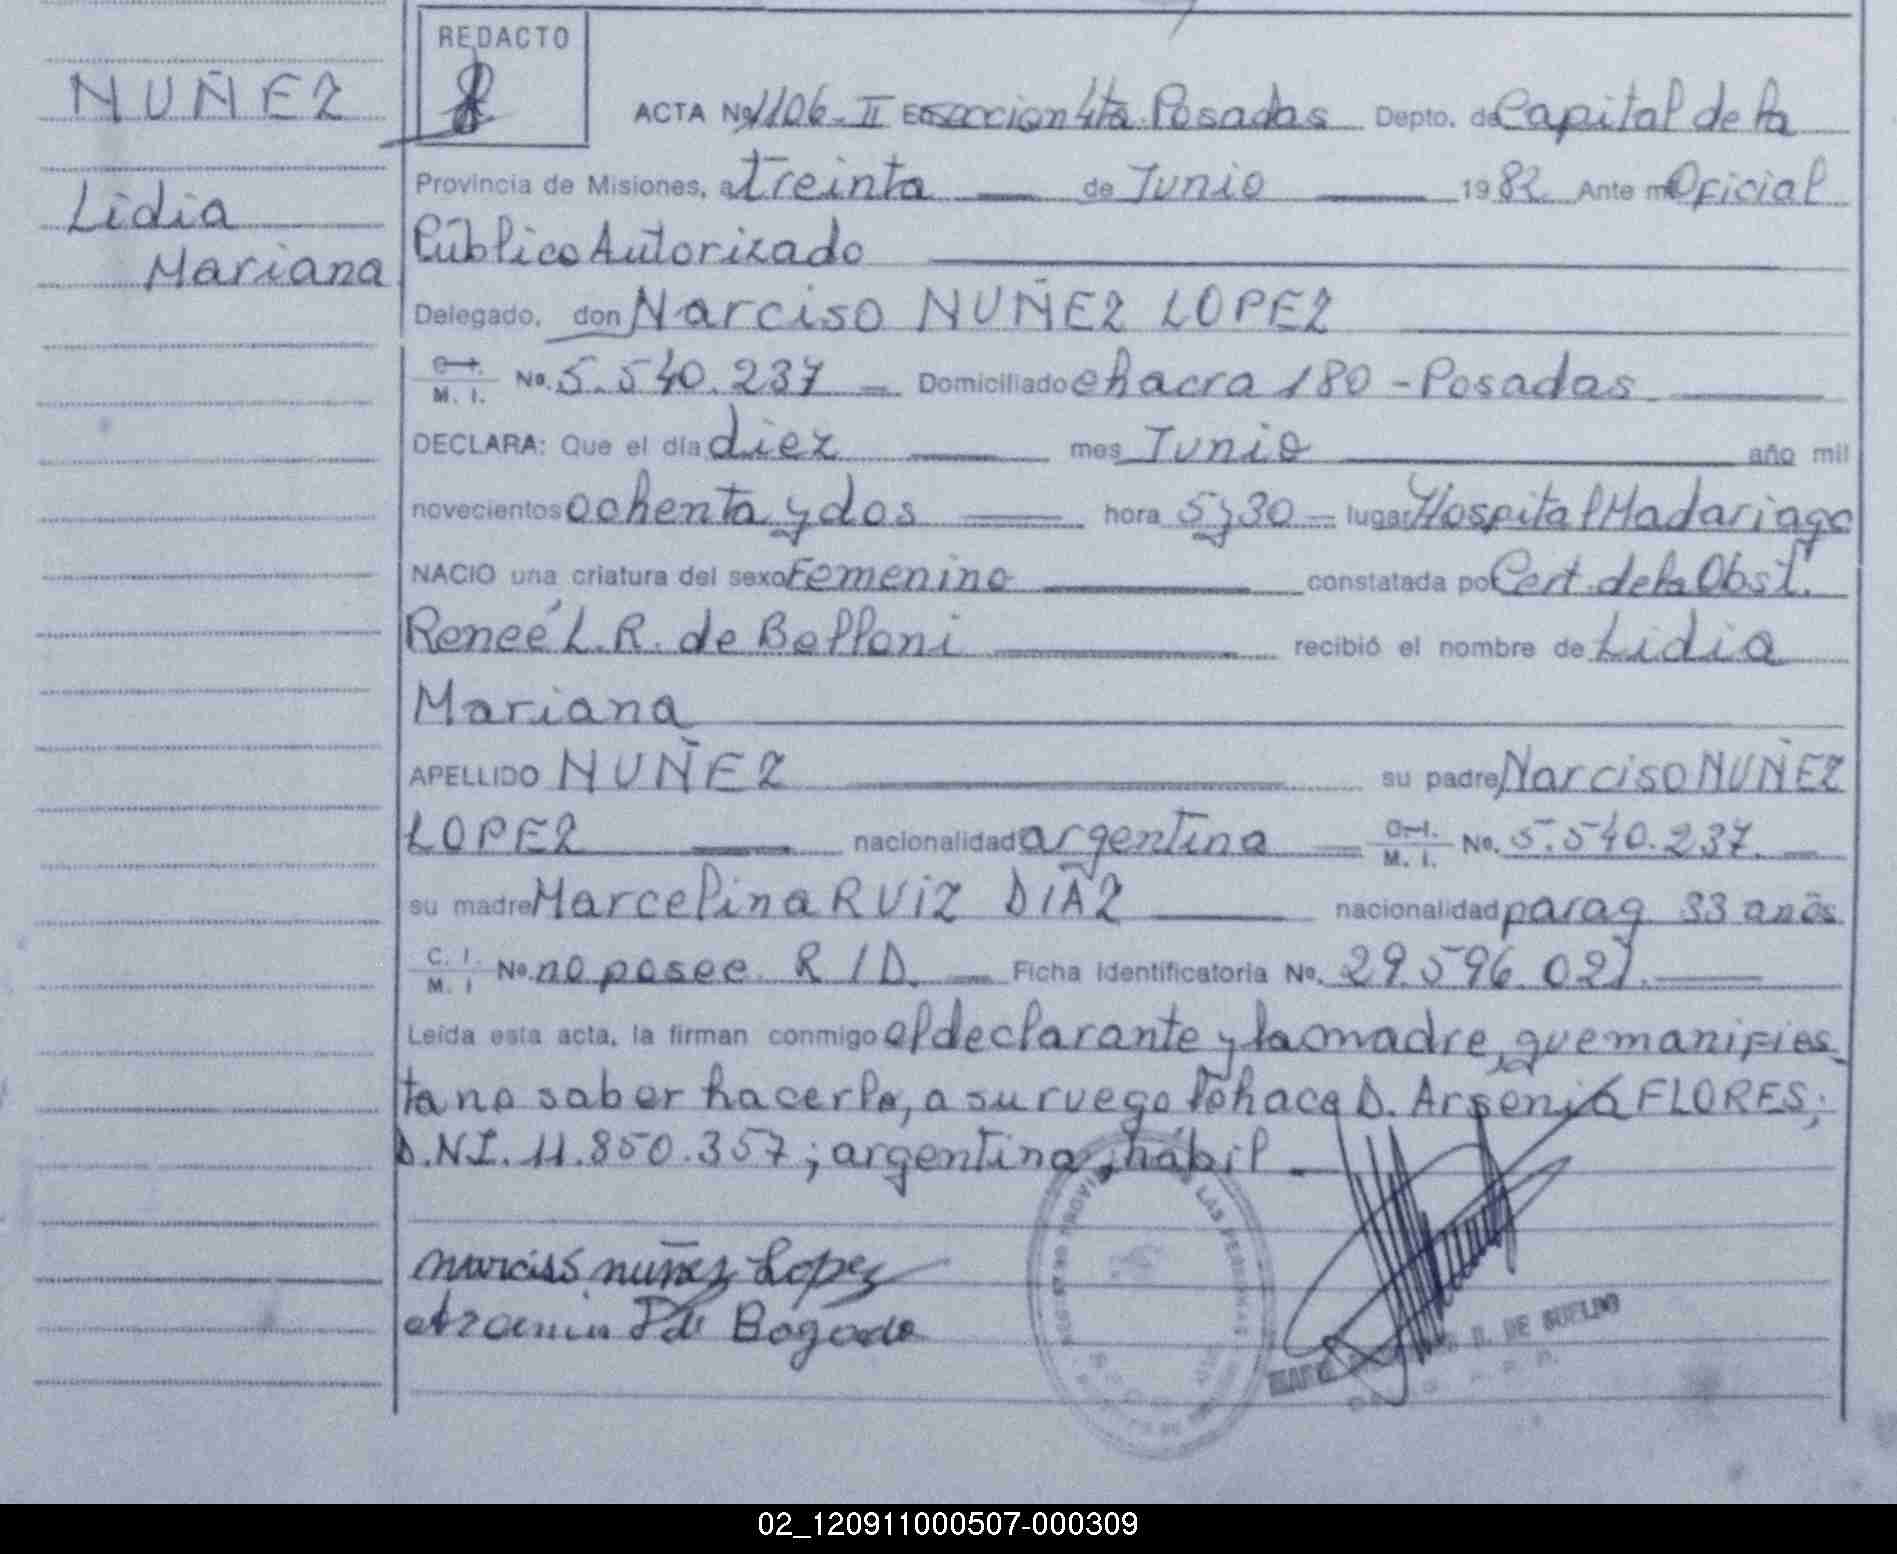 NUÑEZ
Lidia
Mariana
REDACTO
ACTA No. 1106-II En Seccion 4ta Posadas Depto. de Capital de la
Provincia de Misiones, a treinta de Junio 1982 Ante mi Oficial
Público Autorizado
Delegado, don Narciso NUÑEZ LOPEZ
C. I. M. I. No. 5.540.237 Domiciliado chacra 180 - Posadas
DECLARA: Que el día diez mes Junio año mil
novecientos ochenta y dos hora 5 y 30 lugar Hospital Madariaga
NACIO una criatura del sexo Femenino constatada por Cert. de la Obst.
Reneé L. R. de Belloni recibió el nombre de Lidia
Mariana
APELLIDO NUÑEZ su padre Narciso NUÑEZ
LOPEZ nacionalidad argentina C. I. M. I. No. 5.540.237
su madre Marcelina RUIZ DIAZ nacionalidad parag 33 años
C. I. M. I No. no posee R/D. Ficha Identificatoria No. 29.596.021
Leída esta acta, la firman conmigo el declarante y la madre, que manifies
ta no saber hacerlo, a su ruego lo hace D. Arsenia FLORES;
D.N.I. 11.850.357; argentina, hábil
narciso nuñez Lopez
de Bogado
LAS PERSONAS
D. DE SUELDO
02_120911000507-000309